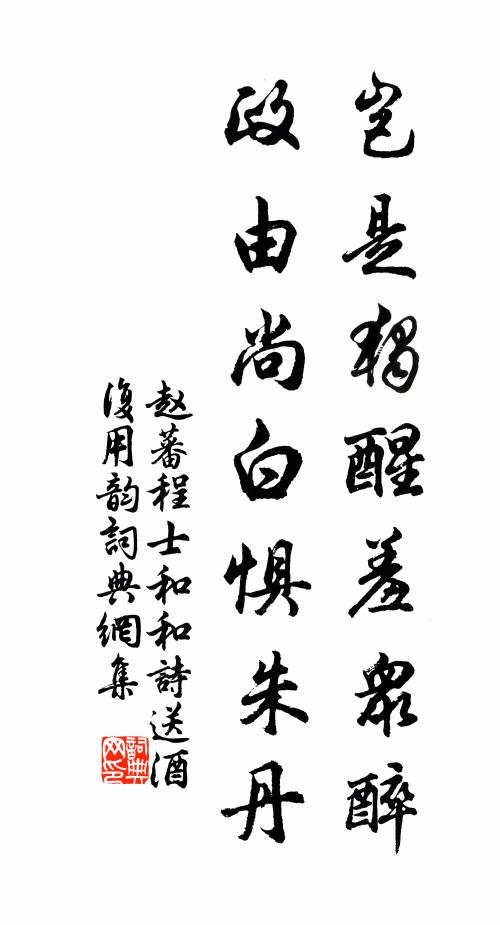 岂是獨醒羞衆醉
政由尚白惧朱丹
赵蕃程士和和詩送酒
復用韵詞典網集
詞典
网印